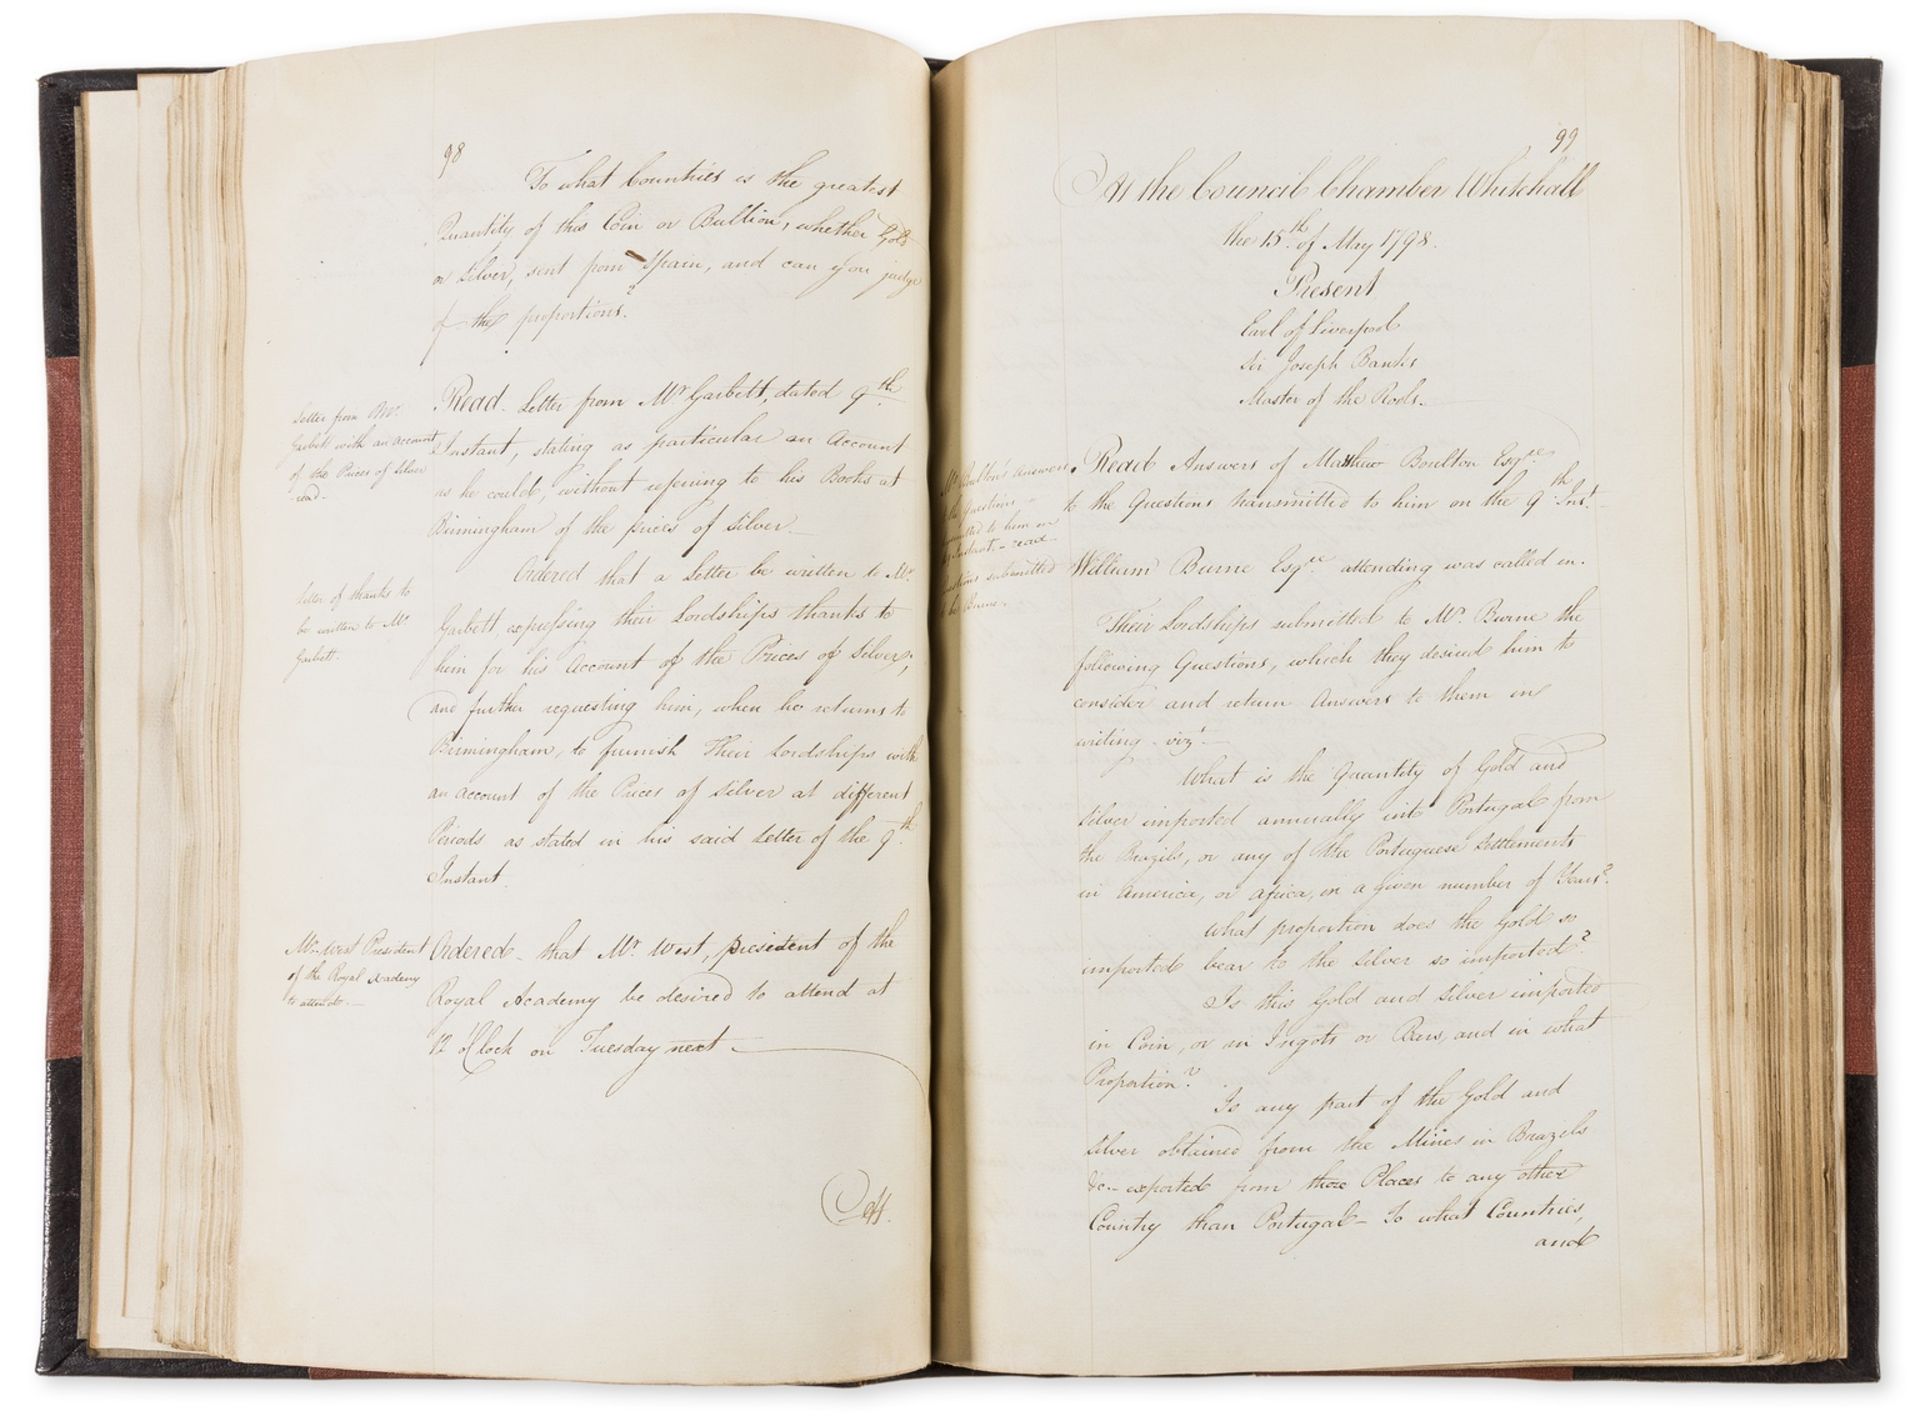 98
To what Countries is the greatest
Quantity of this Coin or Bullion, whether Gold
or Silver, sent from Spain, and can you judge
of the proportions?
Letter from Mr.
Garbett with an account
of the Prices of Silver
read.
Read Letter from Mr Garbett, dated 9th
Instant, stating as particular an Account
as he could, without refering to his Books at
Birmingham of the prices of Silver.
Letter of thanks to
be written to Mr.
Garbett.
Ordered that a Letter be written to Mr.
Garbett, expressing their Lordships thanks to
him for his Account of the Prices of Silver;
and further requesting him, when he returns to
Birmingham, to furnish Their Lordships with
an account of the Prices of Silver at different
Periods as stated in his said Letter of the 9th
Instant.
Mr. West President
of the Royal Academy
to attend.
Ordered that Mr. West, president of the
Royal Academy be desired to attend at
12 o'Clock on Tuesday next
Att.
99
At the Council Chamber Whitehall
the 15th of May 1798.
Present
Earl of Liverpool
Sir Joseph Banks
Master of the Rools.
Mr Boulton's Answers
Questions
to him on
Instant. - read
Questions submitted
Burne.
Read Answers of Matthew Boulton Esqre
to the Questions transmitted to him on the 9th Inst.
William Burne Esqre attending was called in.
Their Lordships submitted to Mr. Burne the
following Questions, which they desired him to
consider and return Answers to them in
writing - vizt
What is the Quantity of Gold and
Silver imported annually into Portugal from
the Brazils, or any of the Portuguese Settlements
in America, or Africa, in a given number of Years?
What proportion does the Gold so
imported bear to the Silver so imported?
Is this Gold and Silver imported
in Coin, or in Ingots or Bars, and in what
Proportion?
Is any part of the Gold and
Silver obtained from the Mines in Brazils
&c- exported from those Places to any other
Country than Portugal - To what Countries,
and